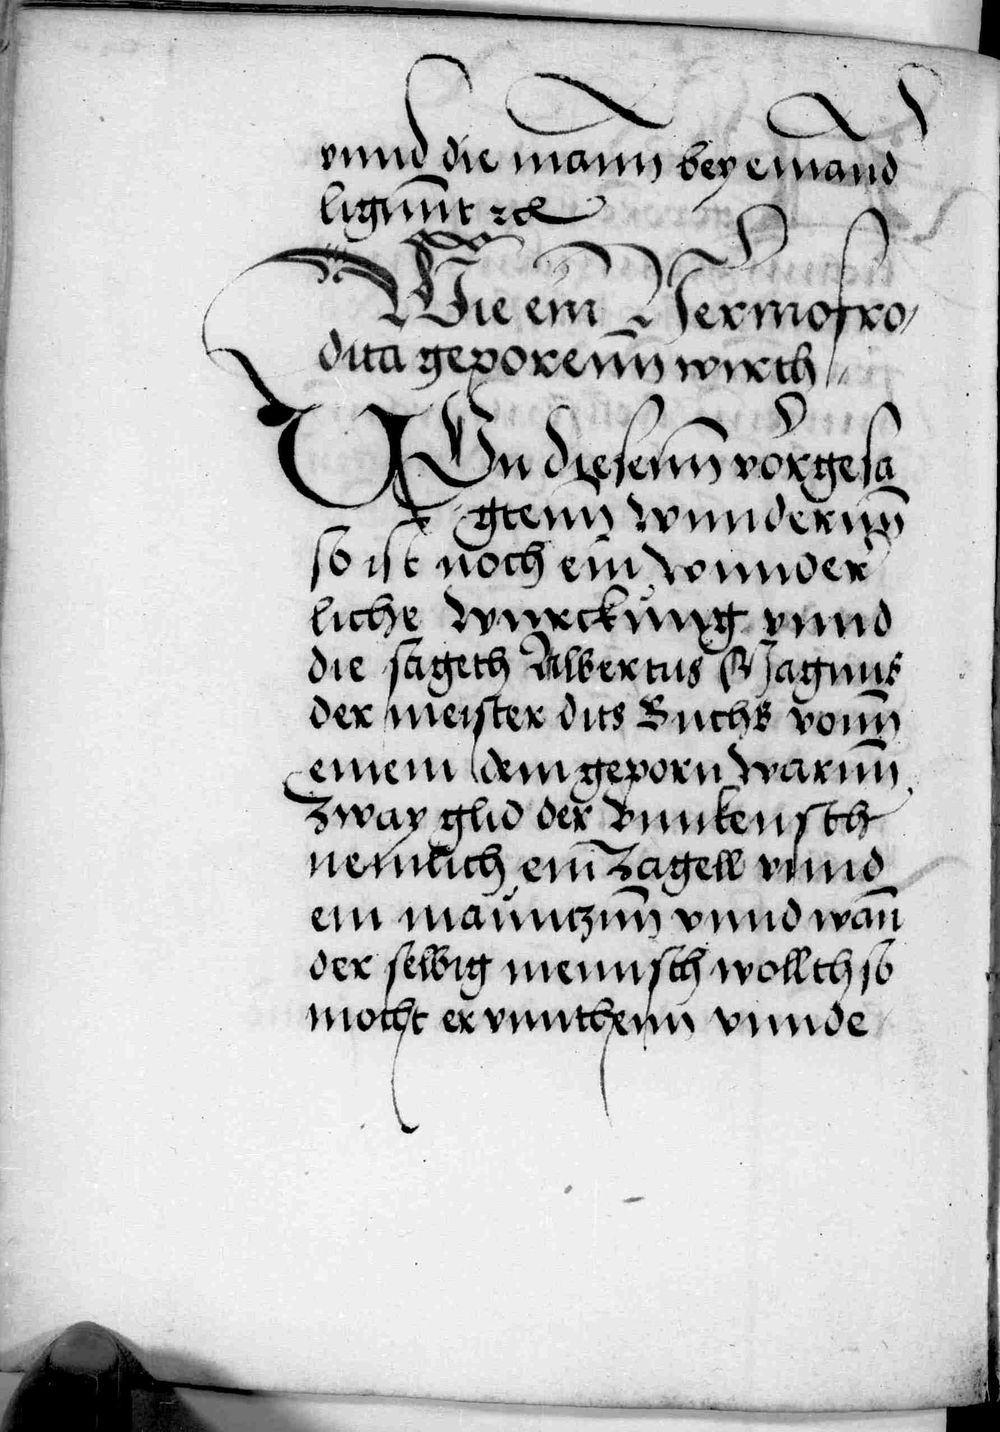 vnnd die mann bey emand
ligunnt ꝛc
Wie ein Hermofro,
dita geporenn wirth
Von diesenn vorgesa
gtenn wunndernn
so ist noch ein wunnder
liche wurckung vnnd
die sageth Albertus Magnus
der meister dits Buchs vonn
einem dem geporn warnn
zway glid der vnnkeusch
nemlich ein zagell vnnd
ein mauncznn vnnd wan
der selbig mennsch wollth so
mocht er vnnthenn vnnde